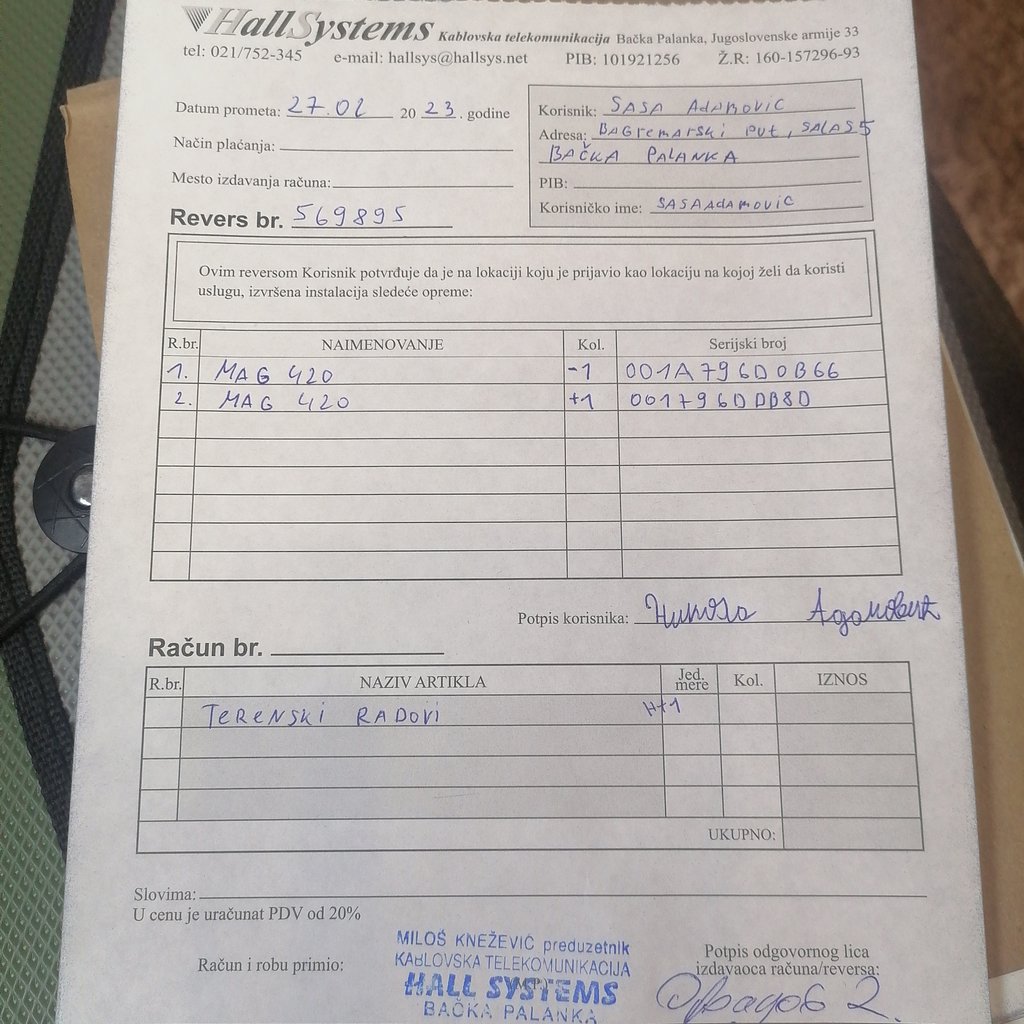 HallSystems Kablovska telekomunikacija Bačka Palanka, Jugoslovenske armije 33
tel: 021/752-345 e-mail: hallsys@hallsys.net PIB: 101921256 Ž.R: 160-157296-93
Datum prometa: 27.02 20 23. godine
Način plaćanja:
Mesto izdavanja računa:
Revers br. 569895
Korisnik: SASA AdAMOVIC
Adresa: BAGremarski put, SALAS 5
BAČKA PALANKA
PIB:
Korisničko ime: SASAAdAMOVIC
Ovim reversom Korisnik potvrđuje da je na lokaciji koju je prijavio kao lokaciju na kojoj želi da koristi
uslugu, izvršena instalacija sledeće opreme:
R.br. NAIMENOVANJE Kol. Serijski broj
1. MAG 420 -1 001A796D0B66
2. MAG 420 +1 001796DDB8D
Potpis korisnika: Никола Адамовић
Račun br.
R.br. NAZIV ARTIKLA Jed. mere Kol. IZNOS
TERENSKI RADOVI H+1
UKUPNO:
Slovima:
U cenu je uračunat PDV od 20%
Račun i robu primio:
MILOŠ KNEŽEVIĆ preduzetnik
KABLOVSKA TELEKOMUNIKACIJA
HALL SYSTEMS
BAČKA PALANKA
Potpis odgovornog lica
izdavaoca računa/reversa: